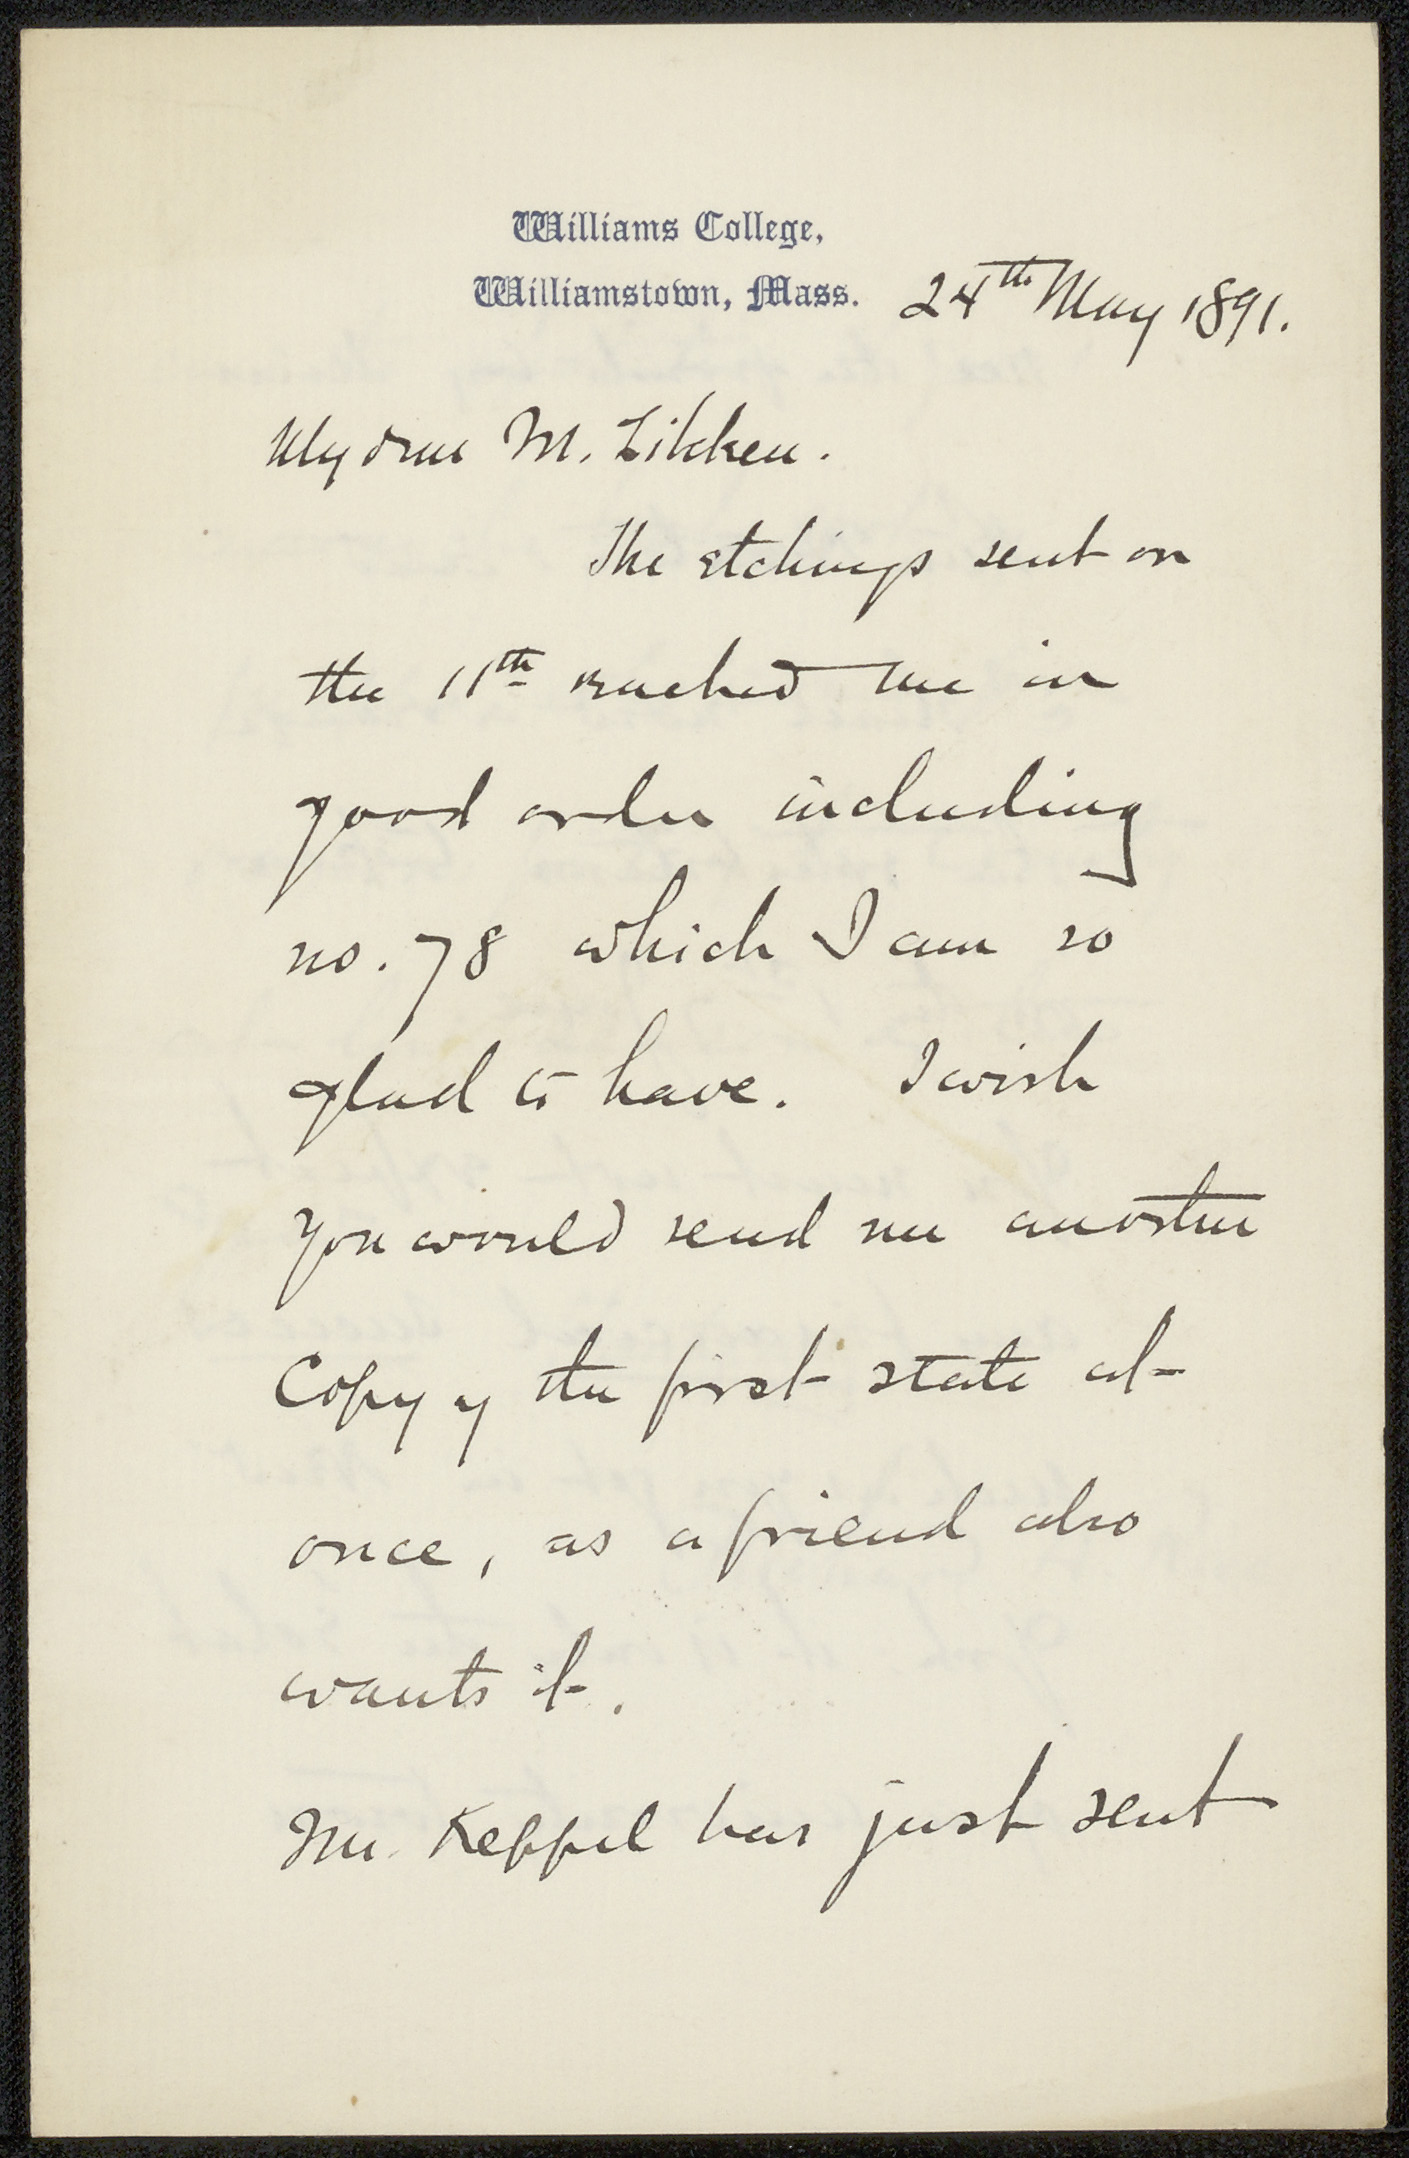 Williams College,
Williamstown, Mass. 24th May 1891.
My dear M. Zilcken.
The etchings sent on
the 11th reached me in
good order including
no. 78 which I am so
glad to have. I wish
you would send me another
copy of the first state at
once, as a friend also
wants it.
Mr. Keppel has just sent